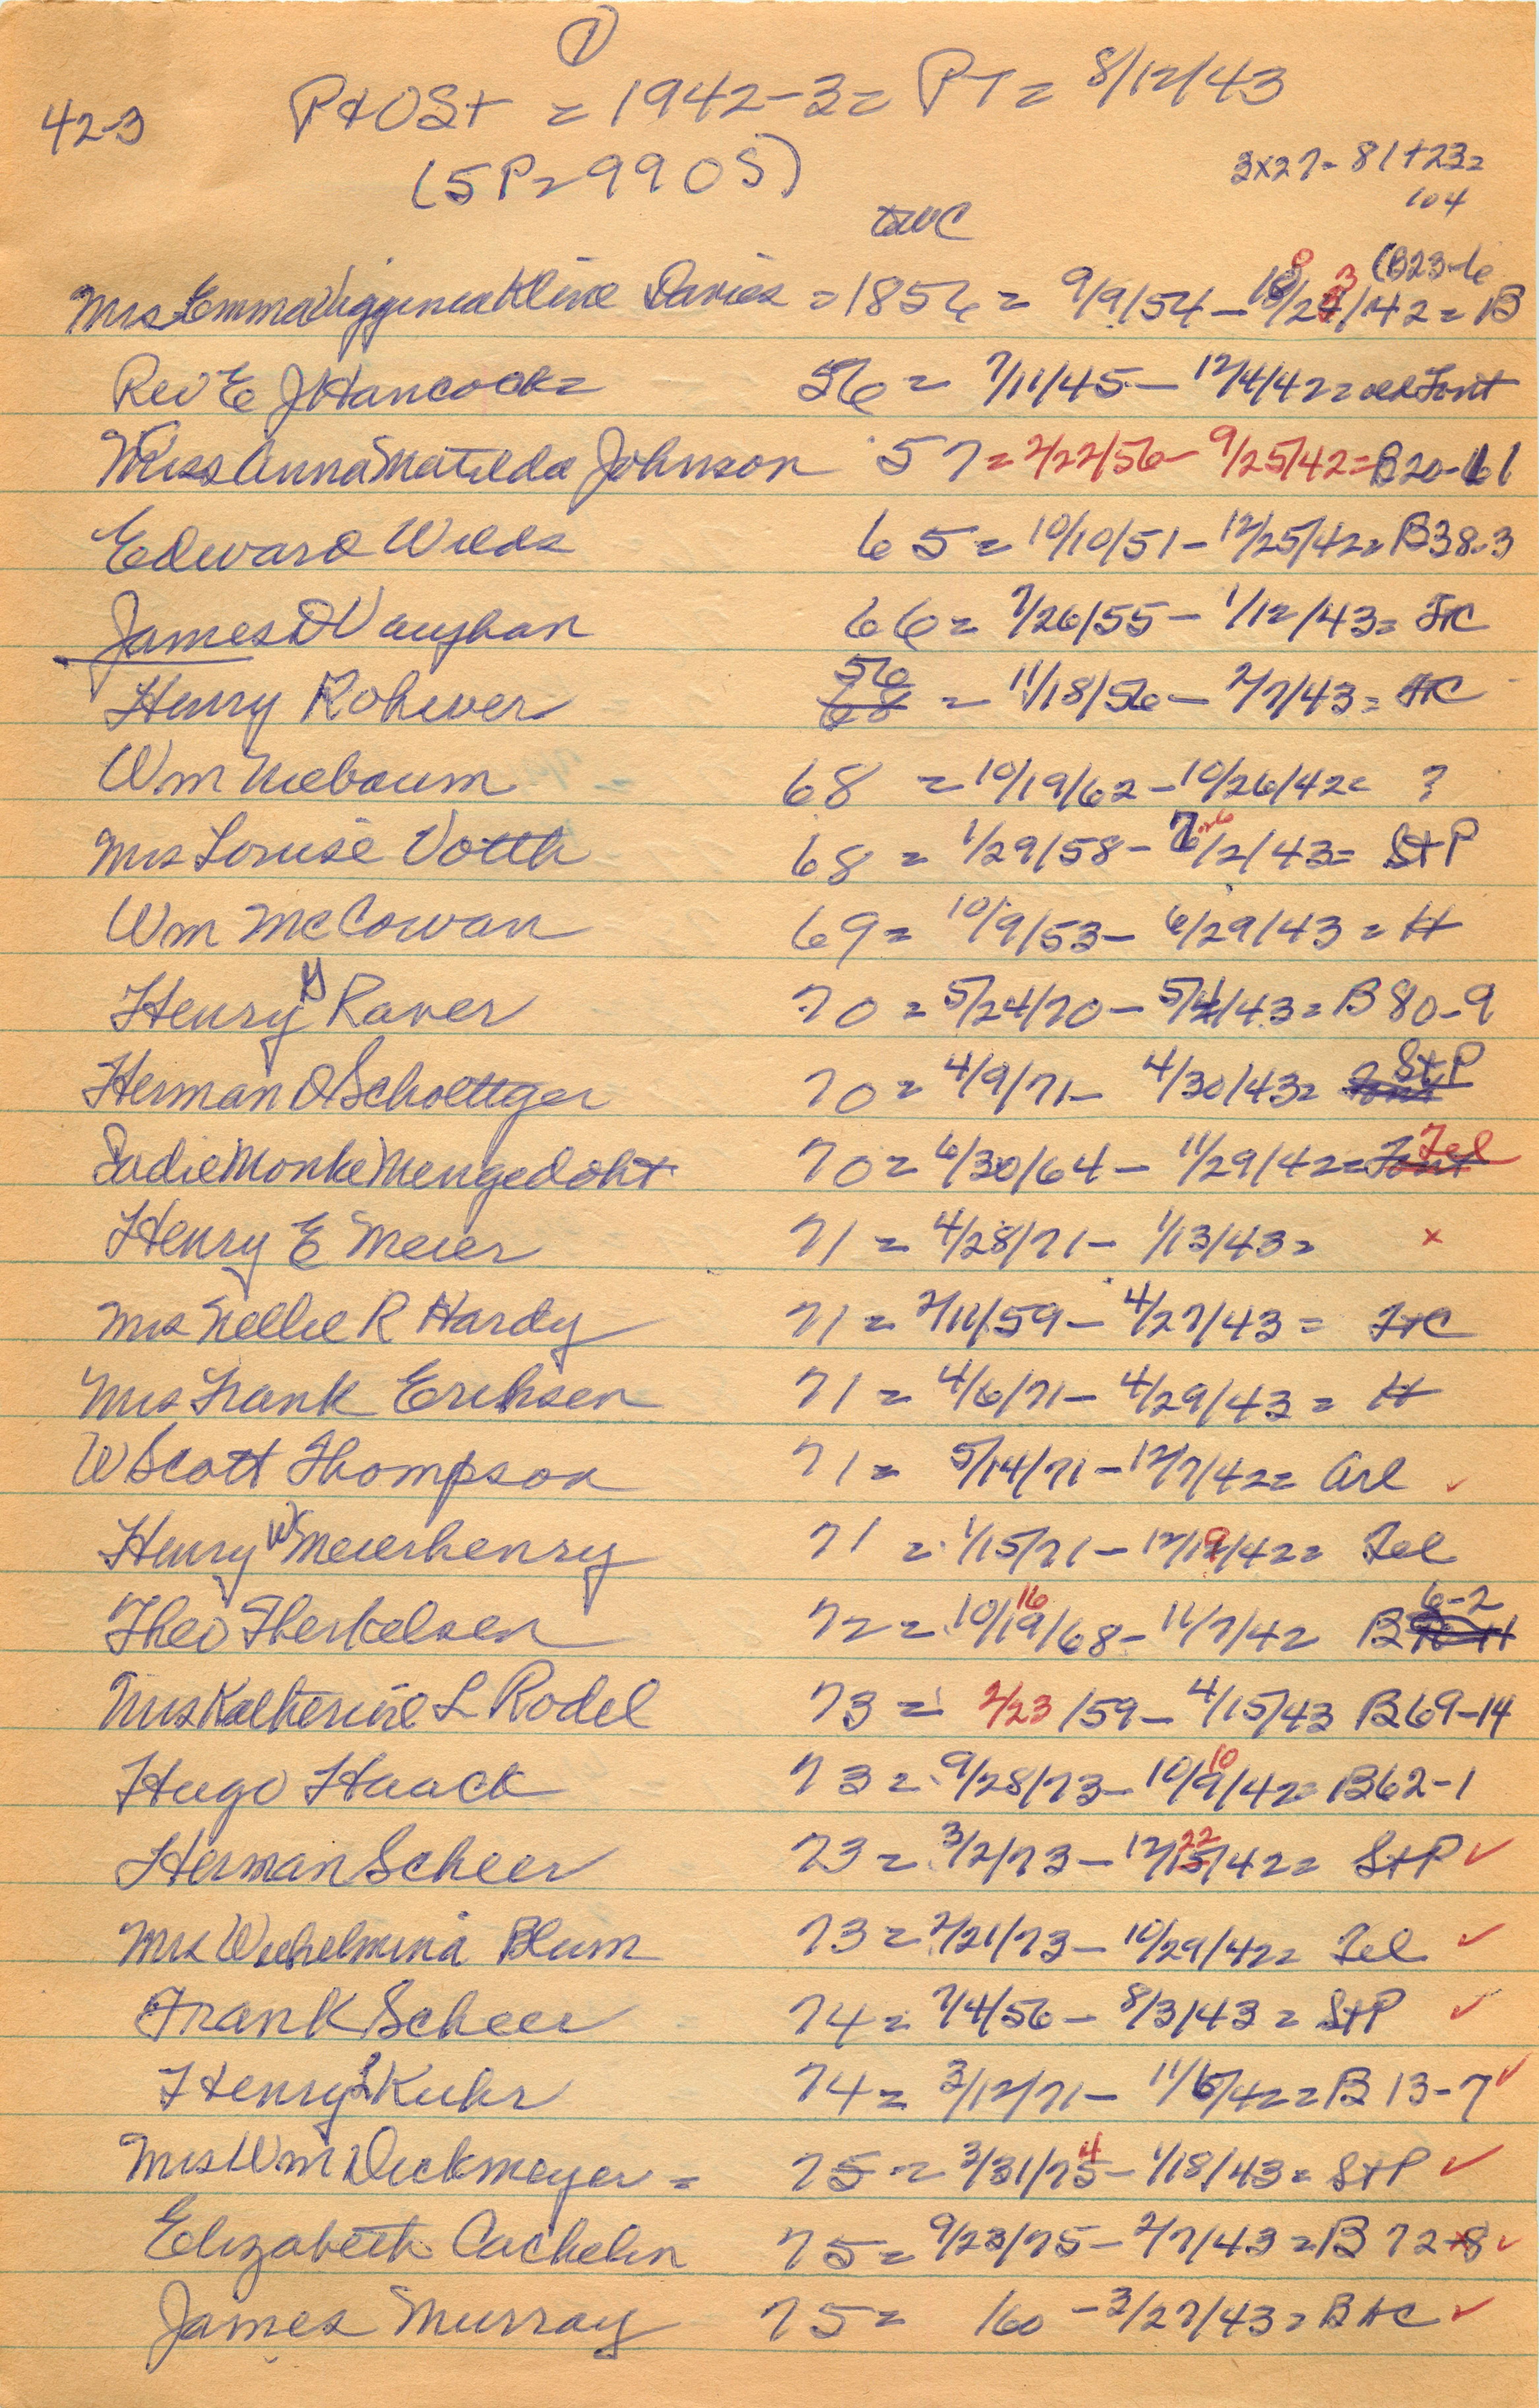 ①
42-3 P+OSt = 1942-3 = PT = 8/12/43
(5P=99OS) 3x27=81+23=
104
Mrs Emma Kline Davies = 1856 = 9/9/54 - /42 = B (B23-6
Rev E J Hancock = 56 = 7/11/45 - 12/4/42 = Font
Miss Anna Matilda Johnson 57 = 2/22/56 - 9/25/42 = B20-11
Edward Wilds 65 = 10/10/51 - 12/25/42 = B38-3
James D Vaughan 66 = 7/26/55 - 1/12/43 = FtC
Henry Rohwer 68 56 = 11/18/56 - 2/7/43 = FtC
Wm Niebaum 68 = 10/19/62 - 10/26/42 = ?
Mrs Louise Votth 68 = 1/29/58 - /2/43 = StP
Wm McCowan 69 = 10/9/53 - 6/29/43 = H
Henry H Raver 70 = 5/24/70 - /43 = B 80-9
Herman O Schoettger 70 = 4/9/71 - 4/30/43 = Font StP
Sadie Monke Mengedoht 70 = 6/30/64 - 11/29/42 = Font Tel
Henry E Meier 71 = 4/28/71 - 1/13/43 = x
Mrs Nellie R Hardy 71 = 2/11/59 - 4/27/43 = FtC
Mrs Frank Eriksen 71 = 4/6/71 - 4/29/43 = H
W Scott Thompson 71 = 5/14/71 - 12/7/42 = Arl ✓
Henry W Meierhenry 71 = 1/15/71 - 12/19/42 = Tel
Theo Therkelsen 72 = 10/19/68 16 - 11/7/42 B 6-2
Mrs Katherine L Rodel 73 = 2/23/59 - 4/15/43 B69-14
Hugo Haack 73 = 9/28/73 - 10/9/42 10 = B62-1
Herman Scheer 73 = 3/2/73 - 12/15/42 22 = StP ✓
Mrs Wilhelmina Blum 73 = 2/21/73 - 10/29/42 = Tel ✓
Frank Scheer 74 = 7/4/56 - 8/3/43 = StP ✓
Henry L Kuhr 74 = 3/12/71 - /42 = B 13-7 ✓
Mrs Wm Dickmeyer = 75 = 3/31/75 4 - 1/18/43 = StP ✓
Elizabeth Cachelin 75 = 9/23/75 - 2/7/43 = B 72-8 ✓
James Murray 75 = /60 - 3/27/43 = B ✓